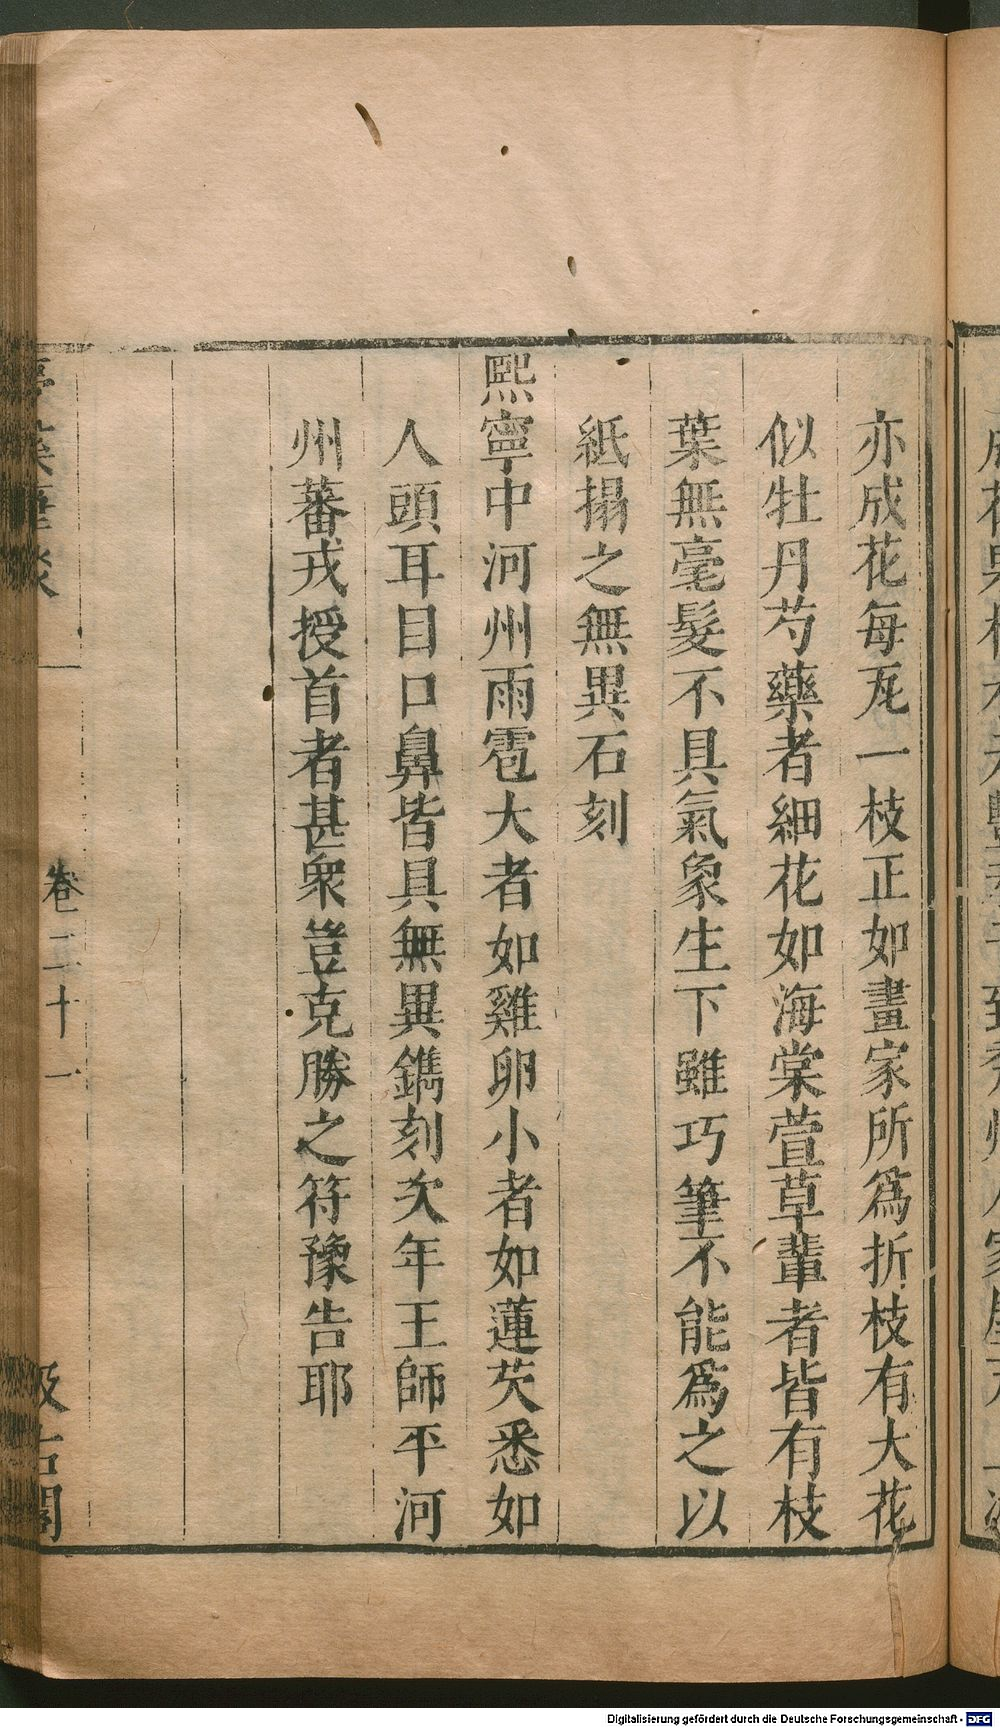 亦成花每瓦一枝正如畫家所爲折枝有大花
似牡丹芍藥者細花如海棠萱草輩者皆有枝
葉無毫髮不具氣象生下雖巧筆不能爲之以
紙搨之無異石刻
熙寧中河州雨雹大者如雞卵小者如蓮芡悉如
人頭耳目口鼻皆具無異鐫刻次年王師平河
州蕃戎授首者甚衆豈克勝之符豫告耶
卷二十一
Digitalisierung gefördert durch die Deutsche Forschungsgemeinschaft - DFG